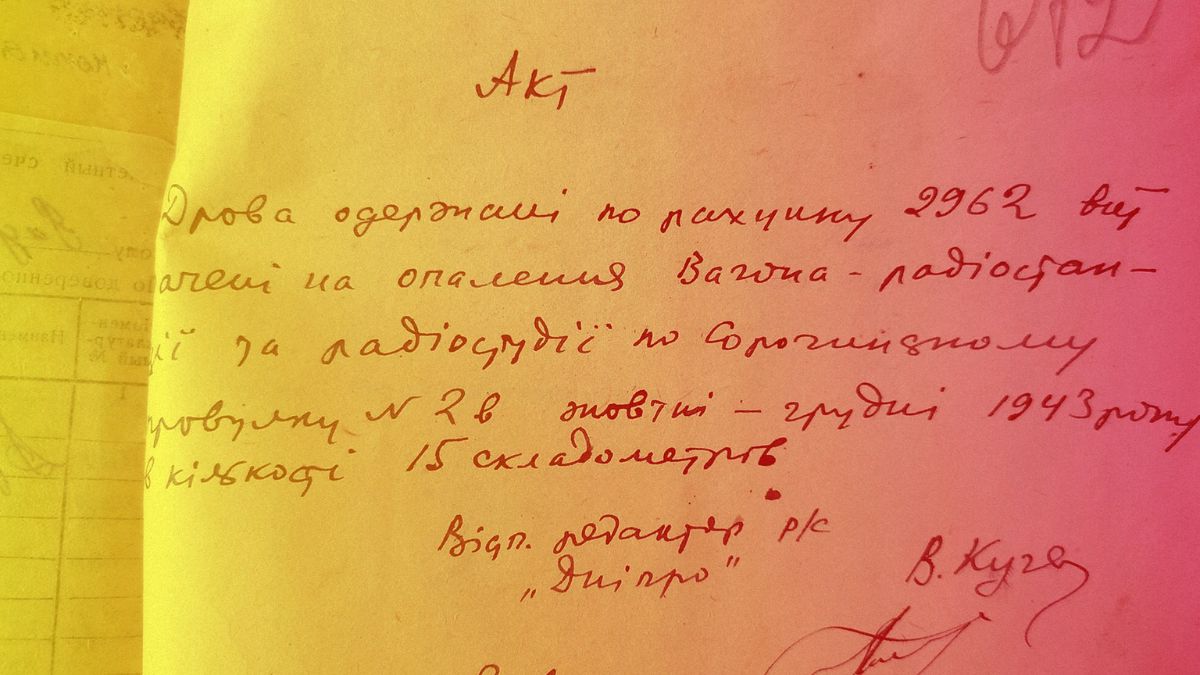 612
Акт
Дрова одержані по рахунку 2962 вит
рачені на опалення Вагона - радіостан-
ції та радіостудії по Сорочинському
провулку N 2 в жовтні - грудні 1943 року
в кількості 15 складометрів
Відп. редактор р/с
„Дніпро"
В. Куче
етный сче
По доверенно